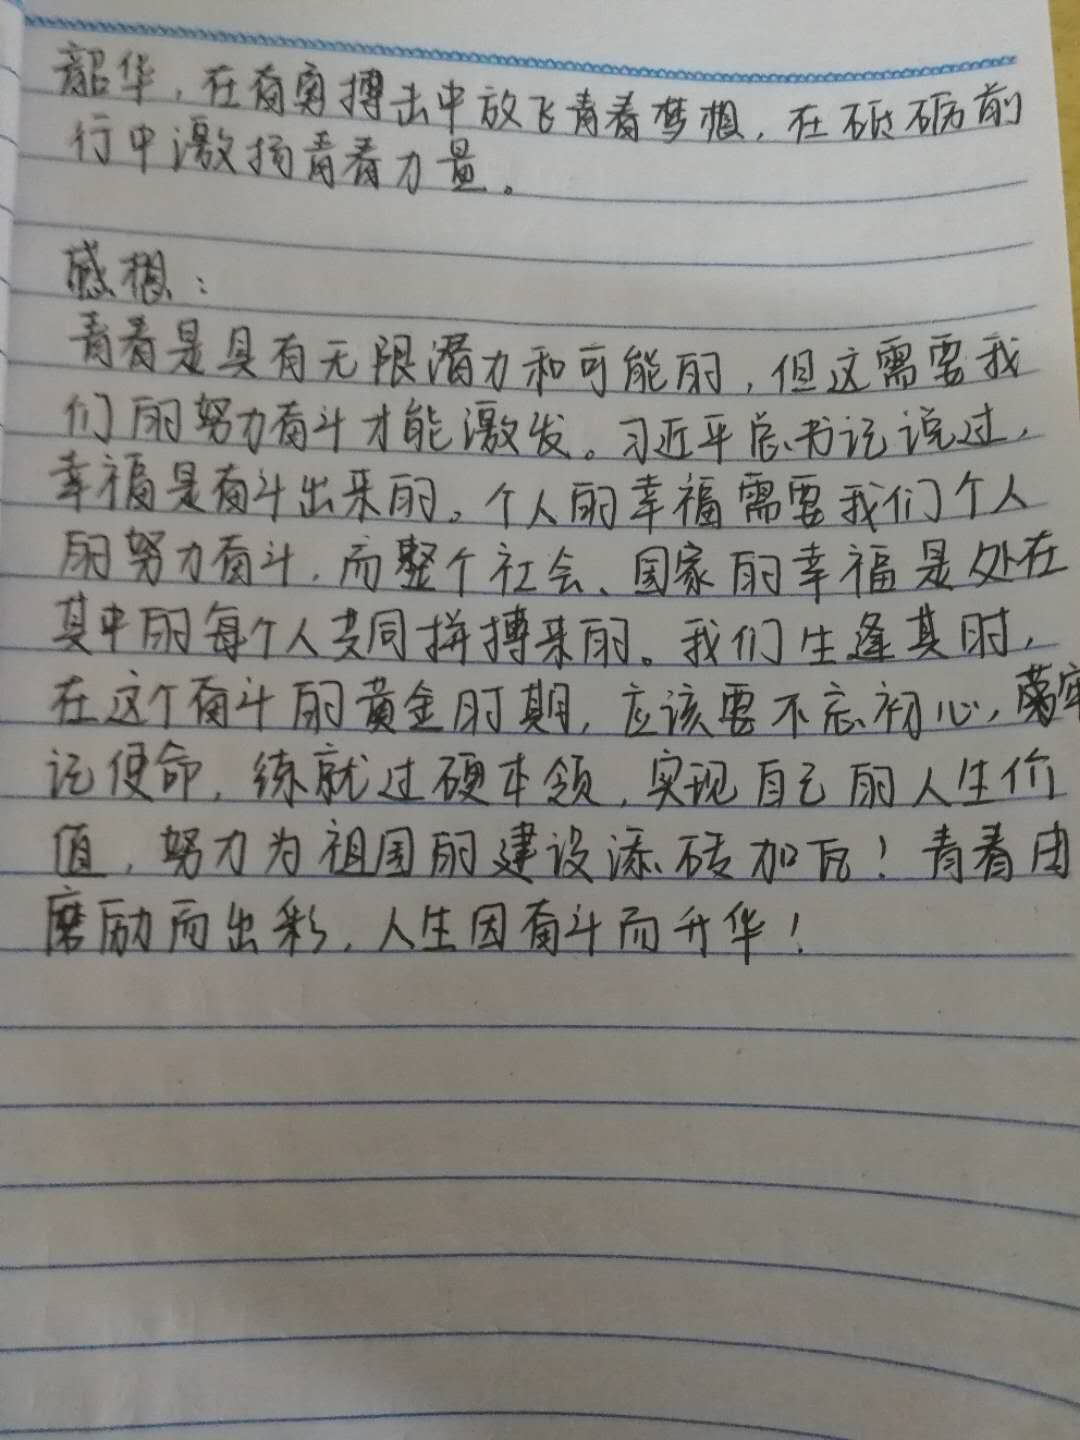 韶华，在奋勇搏击中放飞青春梦想，在砥砺前
行中激扬青春力量。
感想：
青春是具有无限潜力和可能的，但这需要我
们的努力奋斗才能激发。习近平总书记说过，
幸福是奋斗出来的。个人的幸福需要我们个人
的努力奋斗，而整个社会、国家的幸福是处在
其中的每个人共同拼搏来的。我们生逢其时，
在这个奋斗的黄金时期，应该要不忘初心，牢
记使命，练就过硬本领，实现自己的人生价
值，努力为祖国的建设添砖加瓦！青春由
磨励而出彩，人生因奋斗而升华！